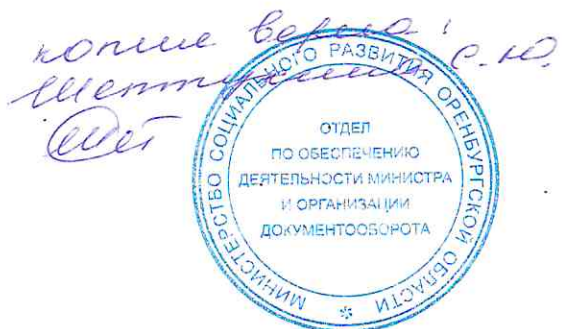 копия верна:
С.Ю.
МИНИСТЕРСТВО СОЦИАЛЬНОГО РАЗВИТИЯ ОРЕНБУРГСКОЙ ОБЛАСТИ
ОТДЕЛ
ПО ОБЕСПЕЧЕНИЮ
ДЕЯТЕЛЬНОСТИ МИНИСТРА
И ОРГАНИЗАЦИИ
ДОКУМЕНТООБОРОТА